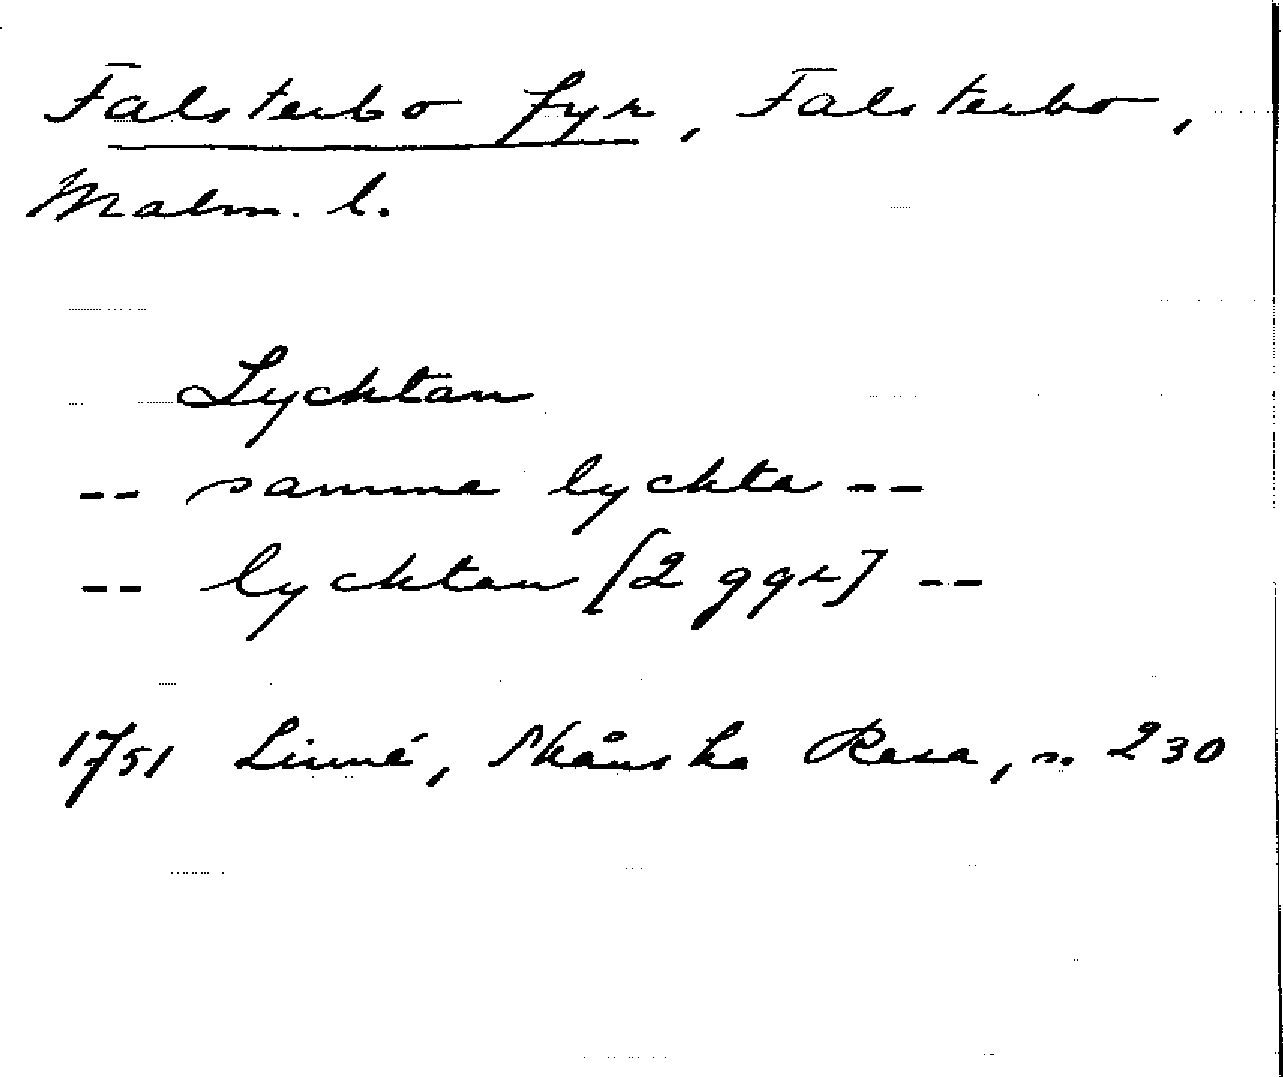 Falsterbo fyr, Falsterbo,
Malm. l.
Lychtan
-- samma lychta --
-- lychtan [2 ggr] --
1751 Linné, Skånska Resa, s. 230